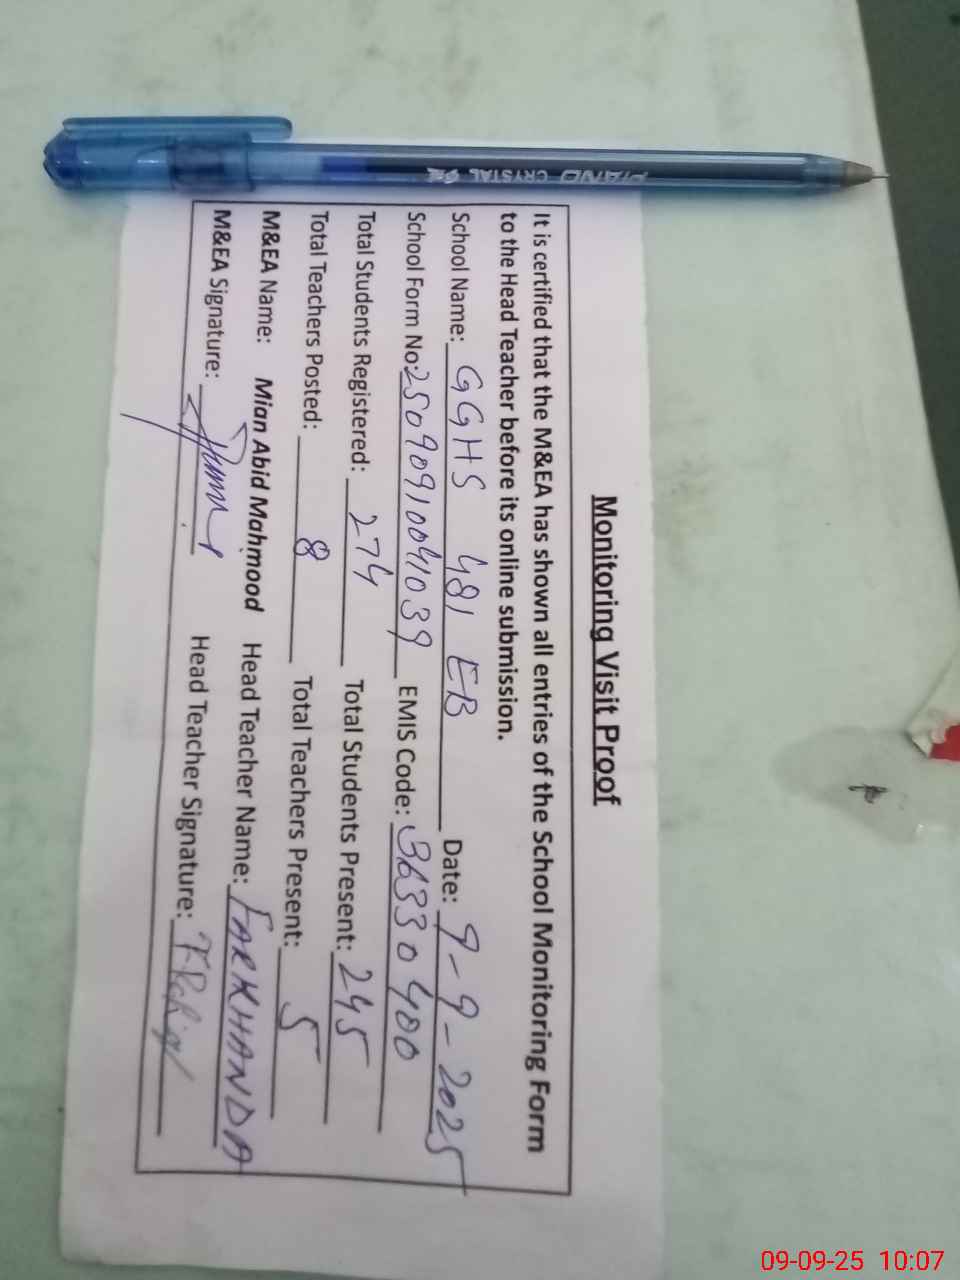 Monitoring Visit Proof
It is certified that the M&EA has shown all entries of the School Monitoring Form
to the Head Teacher before its online submission.
School Name: GGHS 481 EB Date: 9-9-2025
School Form No: 250909100041039 EMIS Code: 36330400
Total Students Registered: 274 Total Students Present: 245
Total Teachers Posted: 8 Total Teachers Present: 5
M&EA Name: Mian Abid Mahmood Head Teacher Name: FARKHANDA
M&EA Signature: Head Teacher Signature:
PIANO CRYSTAL
09-09-25 10:07